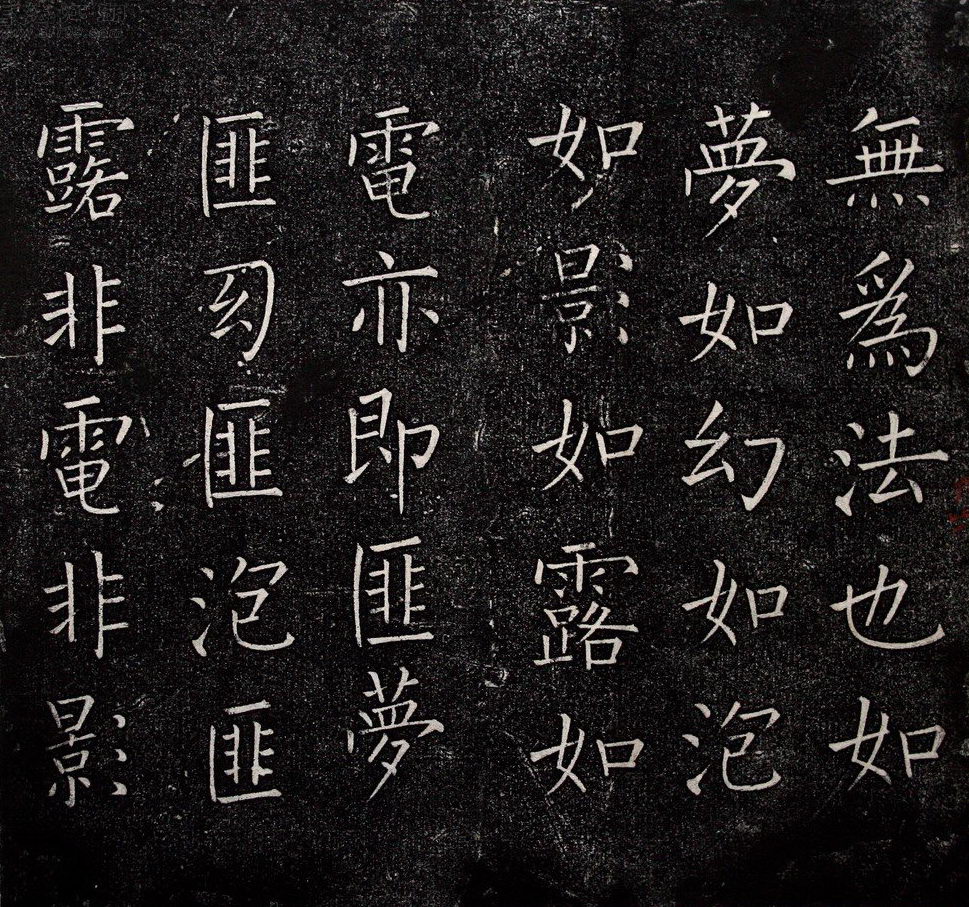 無爲法也如
夢如幻如泡
如影如露如
電亦即匪夢
匪幻匪泡匪
露非電非影